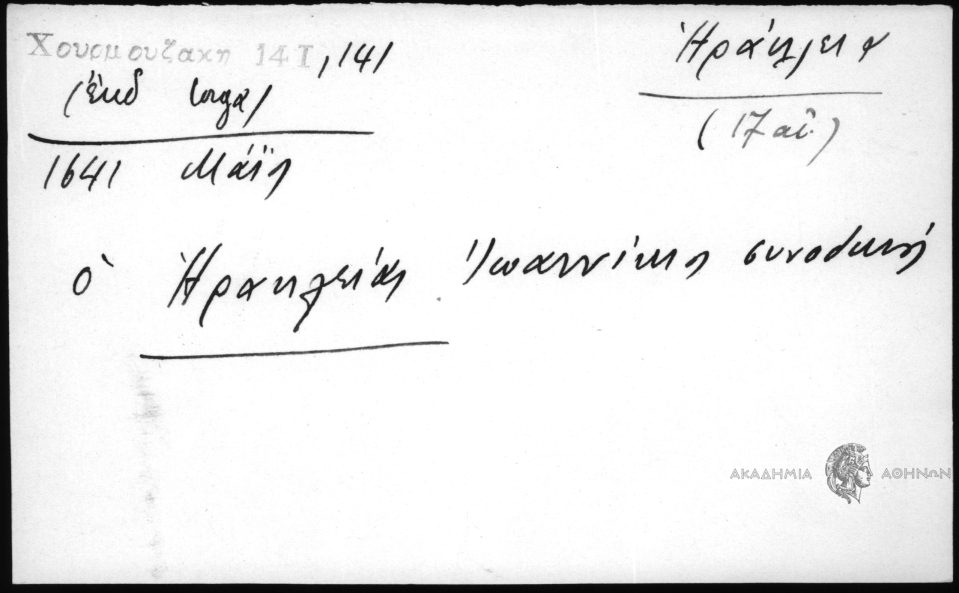 Χουρμουζακη 14I, 141
Ἡράκλεια
(Ἐκδ Iorga)
(17 αἰ.)
1641 Μάϊος
ὁ Ἡρακλείας Ἰωαννίκιος συνοδικῶς
ΑΚΑΔΗΜΙΑ ΑΘΗΝΩΝ